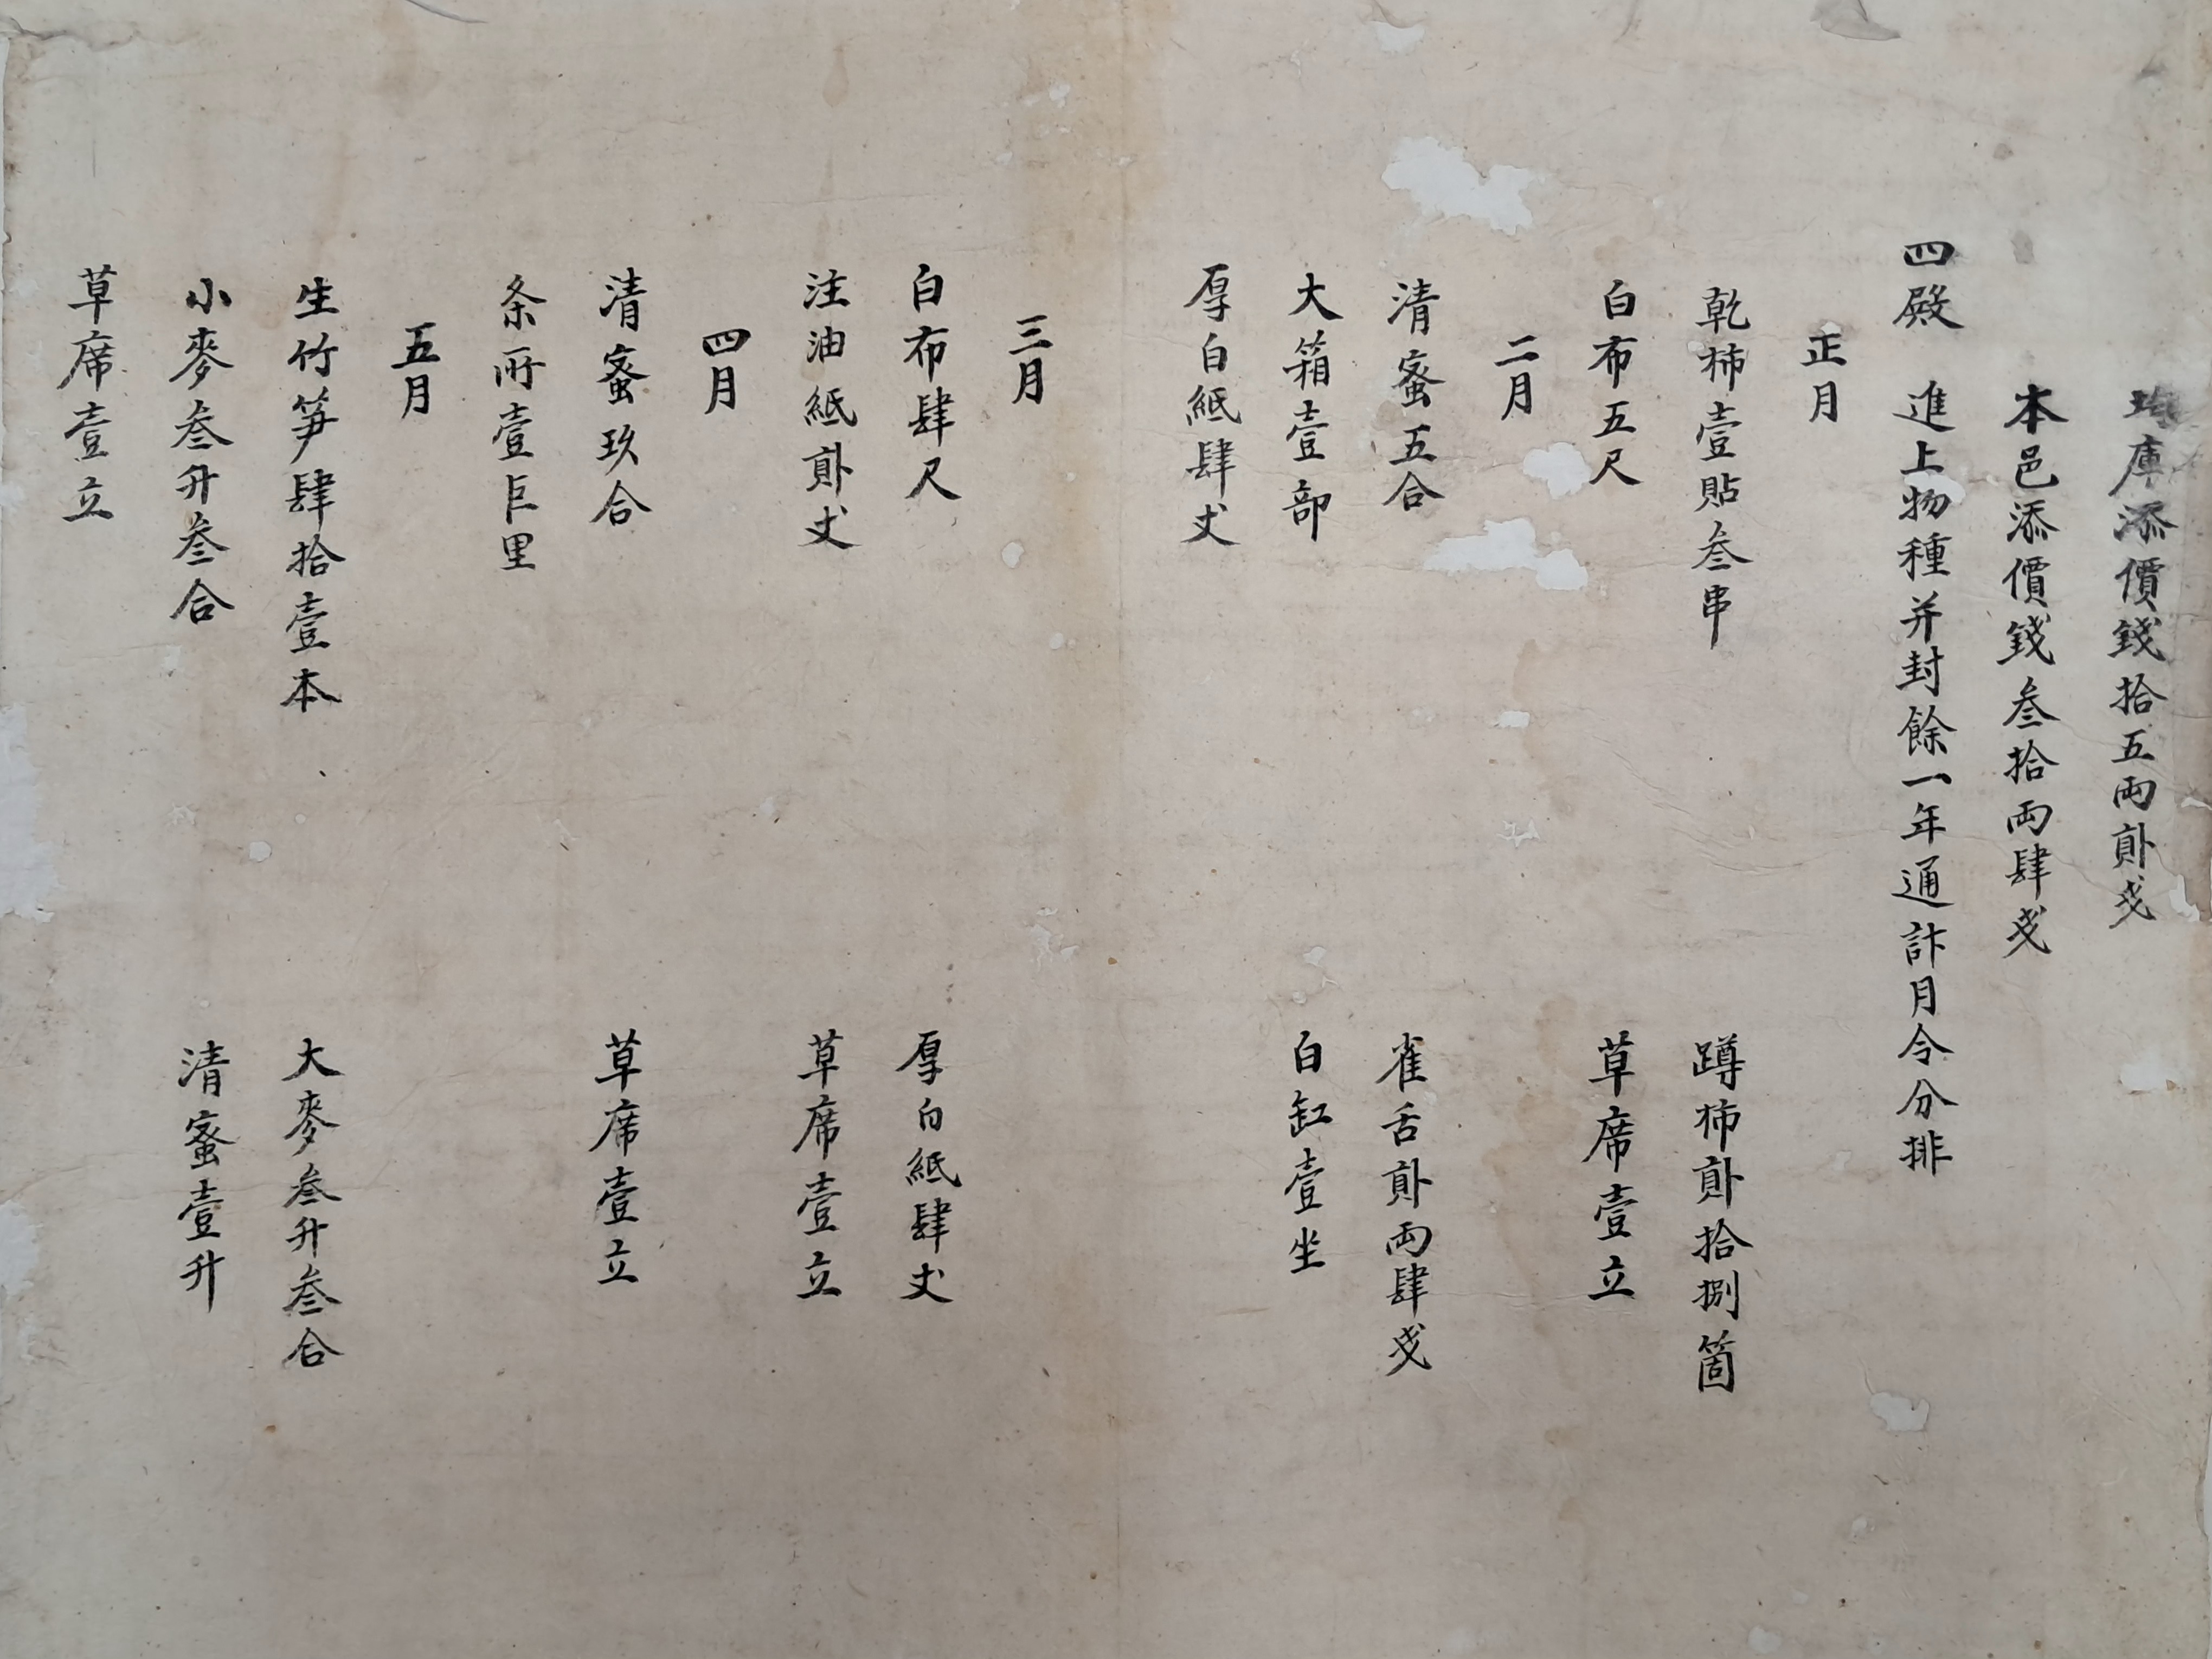 庫添價錢拾五両貳戔
本邑添價錢叁拾両肆戔
四殿 進上物種并封餘一年通計月令分排
正月
乾柿壹貼叁串 蹲柿貳拾捌箇
白布五尺 草席壹立
二月
清蜜五合 雀舌貳両肆戔
大箱壹部 白缸壹坐
厚白紙肆丈
三月
白布肆尺 厚白紙肆丈
注油紙貳丈 草席壹立
四月
清蜜玖合 草席壹立
条所壹巨里
五月
生竹笋肆拾壹本 大麥叁升叁合
小麥叁升叁合 清蜜壹升
草席壹立